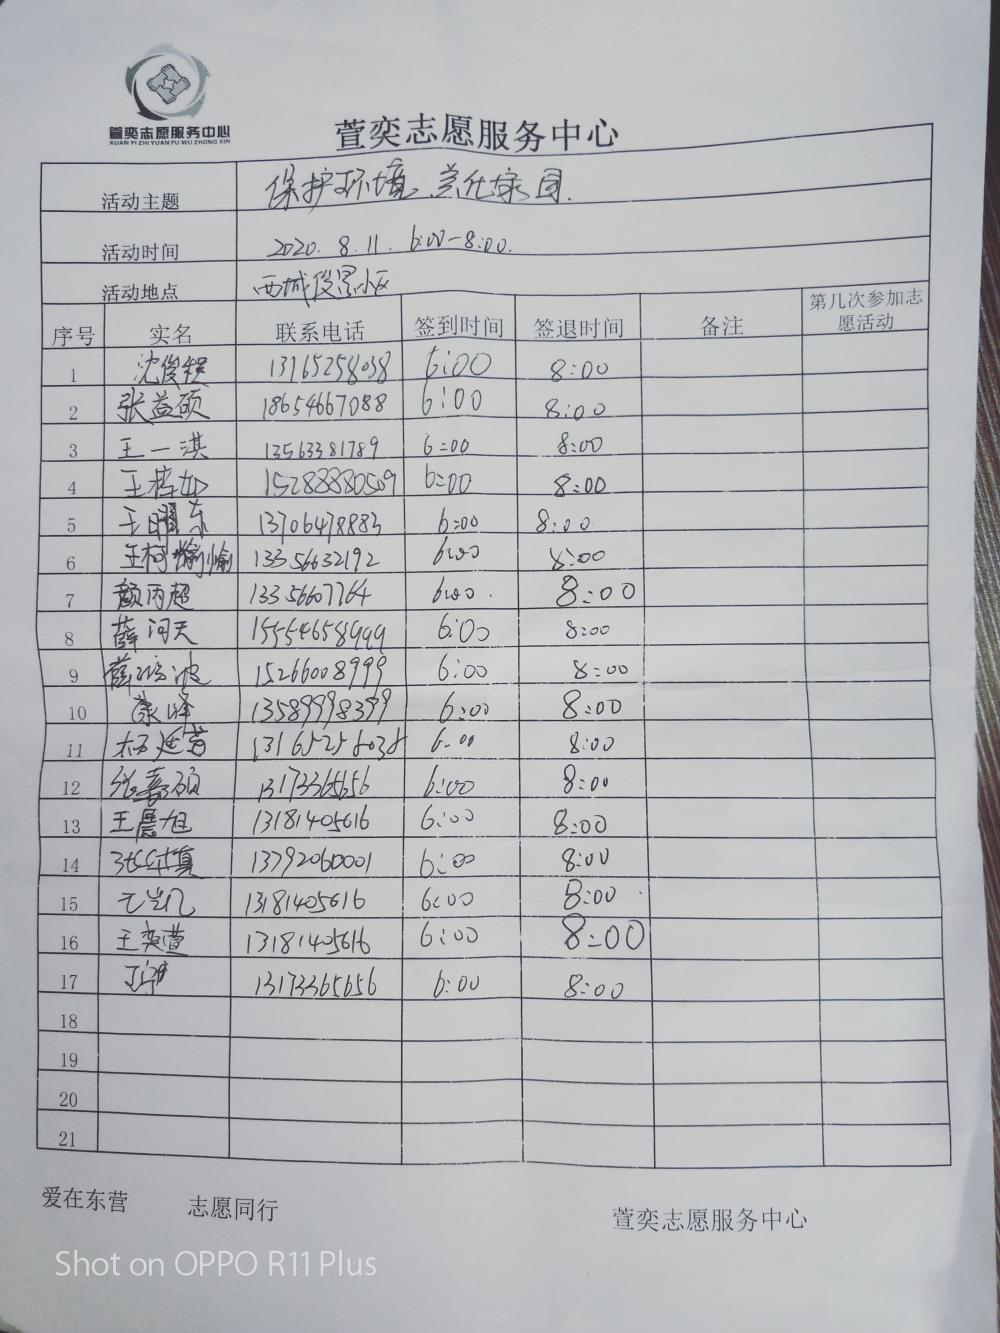 萱奕志愿服务中心
XUAN YI ZHI YUAN FU WU ZHONG XIN
萱奕志愿服务中心
活动主题 保护环境 美化家园.
活动时间 2020. 8. 11. 6:00-8:00.
活动地点 西城小区
序号 实名 联系电话 签到时间 签退时间 备注 第几次参加志愿活动
1 沈俊 13165258038 6:00 8:00
2 张益硕 18654667088 6:00 8:00
3 王一淇 13563381789 6:00 8:00
4 王梓如 15288880509 6:00 8:00
5 王曜东 13706478883 6:00 8:00
6 王柯愉愉 13356632192 6:00 8:00
7 颜丙超 13356607764 6:00 8:00
8 薛问天 15554658999 6:00 8:00
9 薛波 15266008999 6:00 8:00
10 峰 13589998399 6:00 8:00
11 杨延 13165258038 6:00 8:00
12 张嘉硕 13173365656 6:00 8:00
13 王晨旭 13181405616 6:00 8:00
14 张 13792060001 6:00 8:00
15 13181405616 6:00 8:00
16 王奕萱 13181405616 6:00 8:00
17 13173365656 6:00 8:00
18
19
20
21
爱在东营 志愿同行 萱奕志愿服务中心
Shot on OPPO R11 Plus